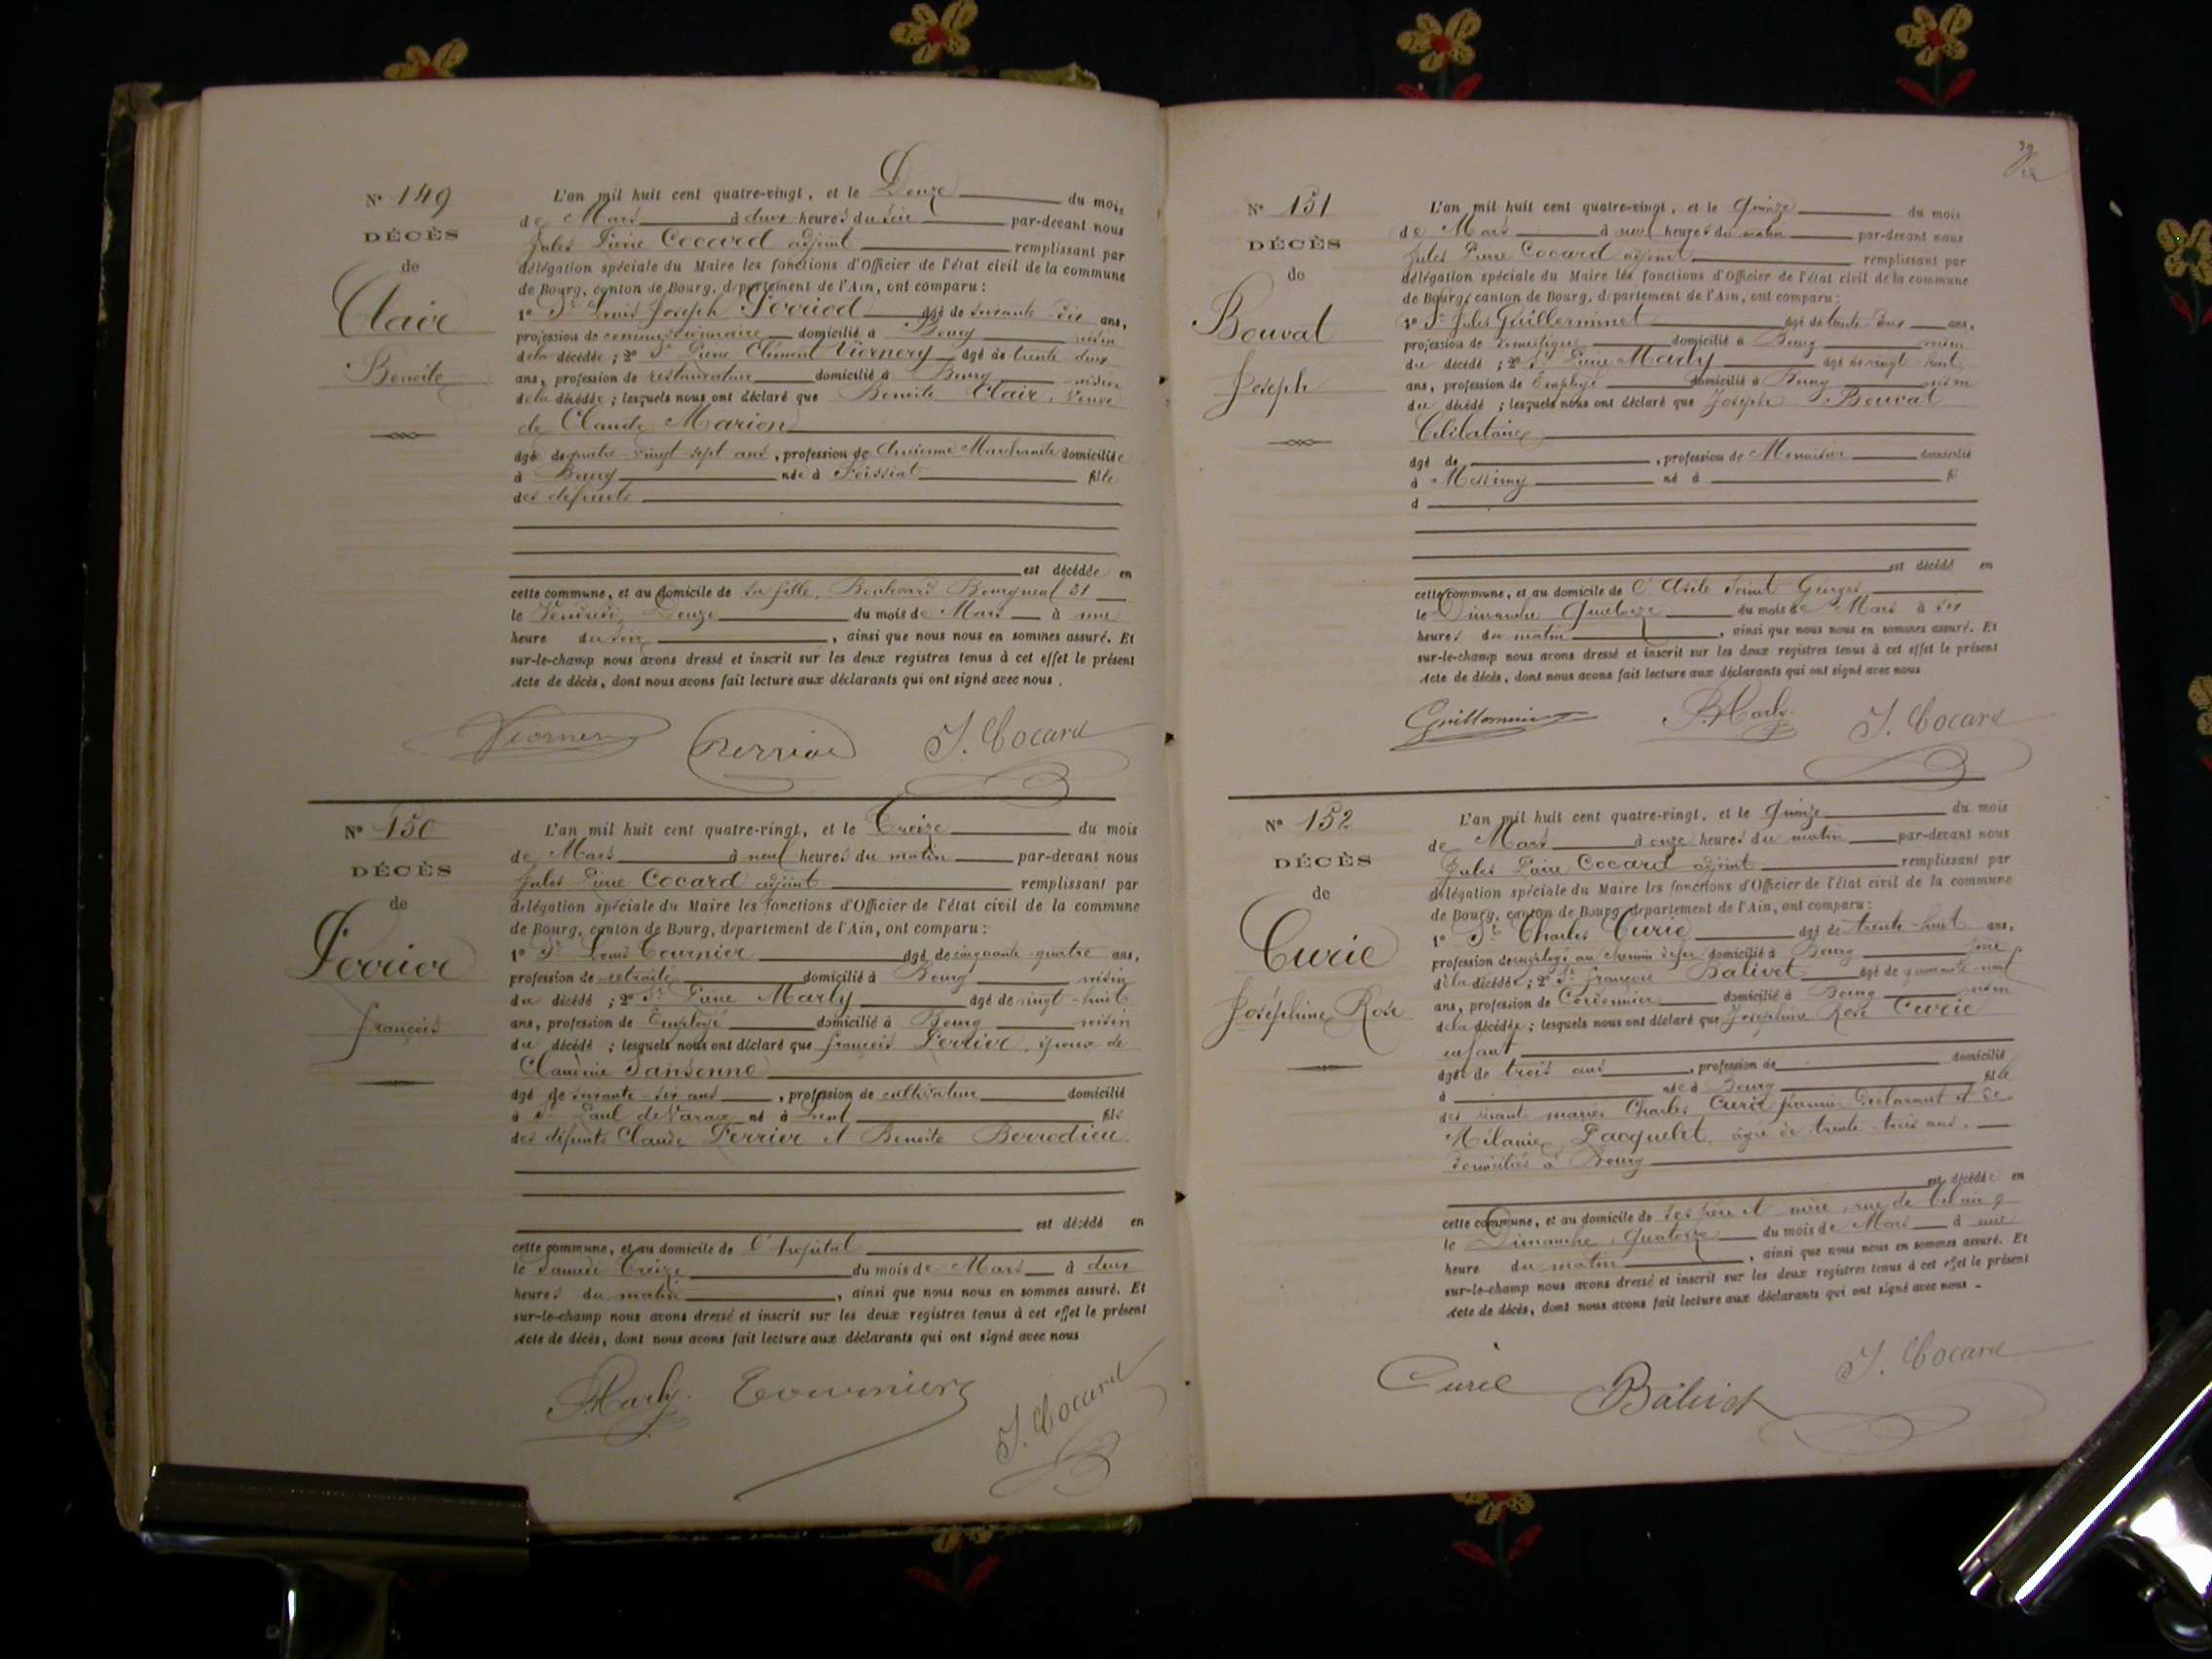 N° 149
DÉCÈS
de
Clair
Benoite
L'an mil huit cent quatre-vingt, et le Douze du mois
de Mars à deux heures du soir par-devant nous
Jules Pierre Cocard adjoint remplissant par
délégation spéciale du Maire les fonctions d'Officier de l'état civil de la commune
de Bourg, canton de Bourg, département de l'Ain, ont comparu :
1° Sr Louis Joseph Perriod âgé de soixante-dix ans,
profession de commissionnaire domicilié à Bourg voisin
de la décédée ; 2° Sr Pierre Clément Viornery âgé de trente deux
ans, profession de restaurateur domicilié à Bourg voisin
de la décédée ; lesquels nous ont déclaré que Benoite Clair, veuve
de Claude Marion
âgée de quatre-vingt sept ans, profession de Ancienne Marchande domiciliée
à Bourg née à Foissiat fille
des défunts
est décédée en
cette commune, et au domicile de sa fille, Boulevard Bourgneuf 31
le Vendredi Douze du mois de Mars à une
heure du soir, ainsi que nous nous en sommes assuré. Et
sur-le-champ nous avons dressé et inscrit sur les deux registres tenus à cet effet le présent
Acte de décès, dont nous avons fait lecture aux déclarants qui ont signé avec nous.
Viornery Perriod J. Cocard
N° 150
DÉCÈS
de
Perrier
François
L'an mil huit cent quatre-vingt, et le Treize du mois
de Mars à neuf heures du matin par-devant nous
Jules Pierre Cocard adjoint remplissant par
délégation spéciale du Maire les fonctions d'Officier de l'état civil de la commune
de Bourg, canton de Bourg, département de l'Ain, ont comparu :
1° Sr Louis Tournier âgé de cinquante-quatre ans,
profession de retraité domicilié à Bourg voisin
du décédé ; 2° Sr Pierre Marly âgé de vingt-huit
ans, profession de Employé domicilié à Bourg voisin
du décédé ; lesquels nous ont déclaré que François Perrier, époux de
Claudine Sansonne
âgé de soixante-six ans, profession de cultivateur domicilié
à St Paul de Varax né à Lent fils
des défunts Claude Perrier et Benoite Berrodieu
est décédé en
cette commune, et au domicile de l'hopital
le Samedi Treize du mois de Mars à deux
heures du matin, ainsi que nous nous en sommes assuré. Et
sur-le-champ nous avons dressé et inscrit sur les deux registres tenus à cet effet le présent
Acte de décès, dont nous avons fait lecture aux déclarants qui ont signé avec nous
P. Marly Tournier J. Cocard
39
N° 151
DÉCÈS
de
Bouvat
Joseph
L'an mil huit cent quatre-vingt, et le Quinze du mois
de Mars à neuf heures du matin par-devant nous
Jules Pierre Cocard adjoint remplissant par
délégation spéciale du Maire les fonctions d'Officier de l'état civil de la commune
de Bourg, canton de Bourg, département de l'Ain, ont comparu :
1° Sr Jules Guillerminet âgé de trente-deux ans,
profession de domestique domicilié à Bourg voisin
du décédé ; 2° Sr Pierre Marly âgé de vingt-huit
ans, profession de Employé domicilié à Bourg voisin
du décédé ; lesquels nous ont déclaré que Joseph Bouvat
Célibataire
âgé de , profession de Menuisier domicilié
à Messimy né à fi
d
est décédé en
cette commune, et au domicile de l'Asile Saint Georges
le Dimanche Quatorze du mois de Mars à six
heures du matin, ainsi que nous nous en sommes assuré. Et
sur-le-champ nous avons dressé et inscrit sur les deux registres tenus à cet effet le présent
Acte de décès, dont nous avons fait lecture aux déclarants qui ont signé avec nous
P. Marly J. Cocard
N° 152
DÉCÈS
de
Curie
Joséphine Rose
L'an mil huit cent quatre-vingt, et le Quinze du mois
de Mars à onze heures du matin par-devant nous
Jules Pierre Cocard adjoint remplissant par
délégation spéciale du Maire les fonctions d'Officier de l'état civil de la commune
de Bourg, canton de Bourg, département de l'Ain, ont comparu :
1° Sr Charles Curie âgé de trente-huit ans,
profession de employé au chemin de fer domicilié à Bourg père
de la décédée ; 2° Sr François Balivet âgé de quarante-neuf
ans, profession de Cordonnier domicilié à Bourg voisin
de la décédée ; lesquels nous ont déclaré que Joséphine Rose Curie
enfant
âgée de trois ans, profession de domicilié
à née à Bourg fille
des vivants mariés Charles Curie premier déclarant et de
Mélanie Pacquelet âgée de trente-trois ans,
domiciliés à Bourg
est décédée en
cette commune, et au domicile de ses père et mère, rue de 9
le Dimanche, Quatorze du mois de Mars à une
heure du matin, ainsi que nous nous en sommes assuré. Et
sur-le-champ nous avons dressé et inscrit sur les deux registres tenus à cet effet le présent
Acte de décès, dont nous avons fait lecture aux déclarants qui ont signé avec nous.
Curie Balivet J. Cocard